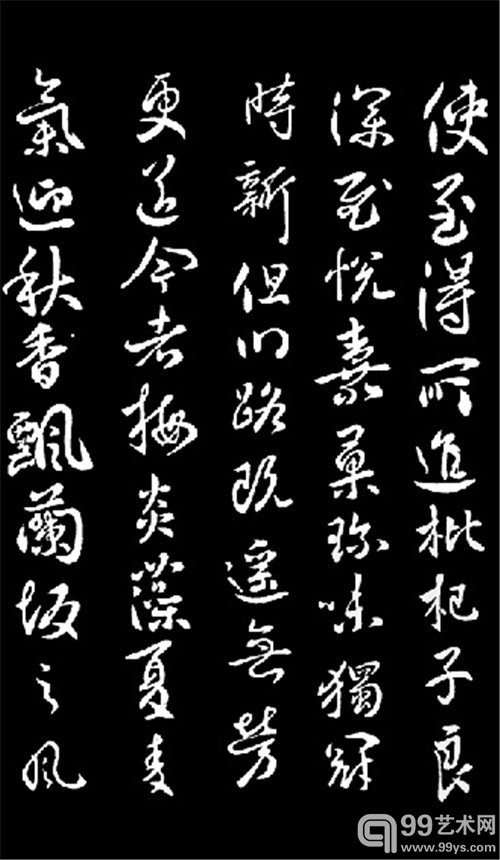 使至得所進枇杷子良
深慰悅嘉果珍味獨冠
時新但川路既遥無勞
更送今者梅炎藻夏麦
氣迎秋香飄蘭坂之風
99艺术网
www.99ys.com